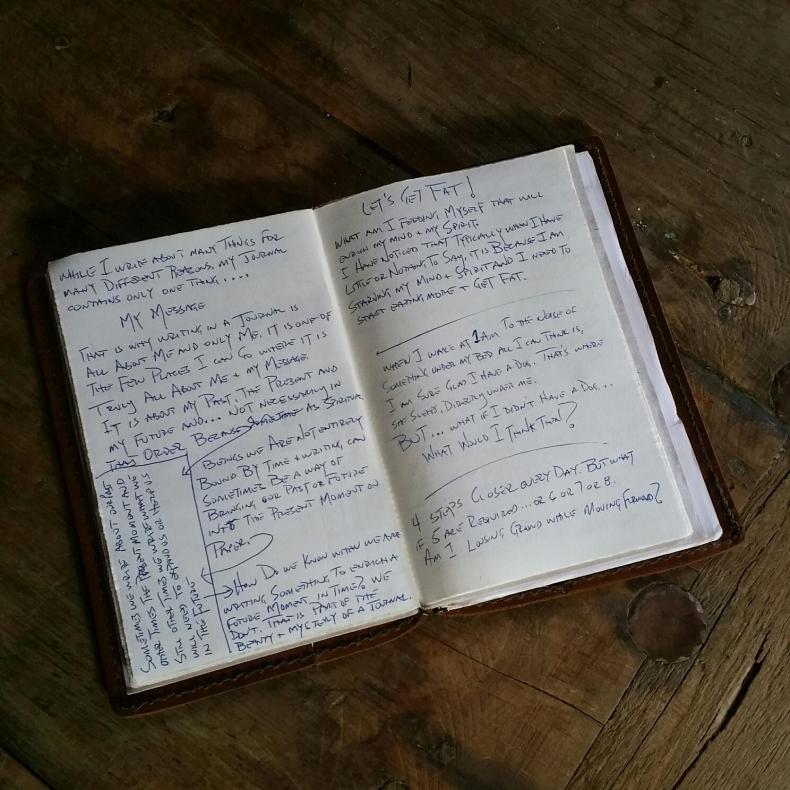 WHILE I WRITE ABOUT MANY THINGS FOR
MANY DIFFERENT REASONS, MY JOURNAL
CONTAINS ONLY ONE THING....
MY MESSAGE
THAT IS WHY WRITING IN A JOURNAL IS
ALL ABOUT ME AND ONLY ME. IT IS ONE OF
THE FEW PLACES I CAN GO WHERE IT IS
TRULY ALL ABOUT ME + MY MESSAGE.
IT IS ABOUT MY PAST, THE PRESENT AND
MY FUTURE AND... NOT NECESSARILY IN
THAT ORDER. BECAUSE SOMETIME AS SPIRITUAL
BEINGS WE ARE NOT ENTIRELY
BOUND BY TIME + WRITING, CAN
SOMETIMES BE A WAY OF
BRINGING OUR PAST OR FUTURE
INTO THE PRESENT MOMENT ON
PAPER.
HOW DO WE KNOW WHEN WE ARE
WRITING SOMETHING TO ENRICH A
FUTURE MOMENT IN TIME? WE
DON'T. THAT IS PART OF THE
BEAUTY + MYSTERY OF A JOURNAL.
SOMETIMES WE WRITE ABOUT OUR PAST
OTHER TIMES THE PRESENT MOMENT AND
STILL OTHER TIMES WE WRITE WHAT WE
WILL NEED TO US OR HELP US
IN THE FUTURE
LET'S GET FAT!
WHAT AM I FEEDING MYSELF THAT WILL
ENRICH MY MIND + MY SPIRIT.
I HAVE NOTICED THAT TYPICALLY WHEN I HAVE
LITTLE OR NOTHING TO SAY, IT IS BECAUSE I AM
STARVING MY MIND + SPIRIT AND I NEED TO
START EATING MORE + GET FAT.
WHEN I WAKE AT 1AM TO THE NOISE OF
SOMETHING UNDER MY BED ALL I CAN THINK IS,
I AM SURE GLAD I HAVE A DOG. THAT'S WHERE
SHE SLEEPS, DIRECTLY UNDER ME.
BUT... WHAT IF I DIDN'T HAVE A DOG...
WHAT WOULD I THINK THEN?
4 STEPS CLOSER EVERY DAY. BUT WHAT
IF 5 ARE REQUIRED... OR 6 OR 7 OR 8.
AM I LOSING GROUND WHILE MOVING FORWARD?